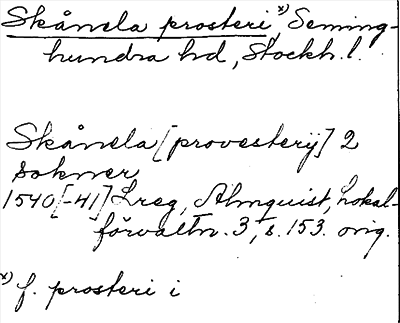 Skånela prosteri,ˣ⁾ Seming-
hundra hd, Stockh. l.
Skånela [provesterij] 2
sokner
1540[-41] Lreg, Almquist, Lokal-
förvaltn. 3, s. 153. orig.
ˣ⁾ f. prosteri i